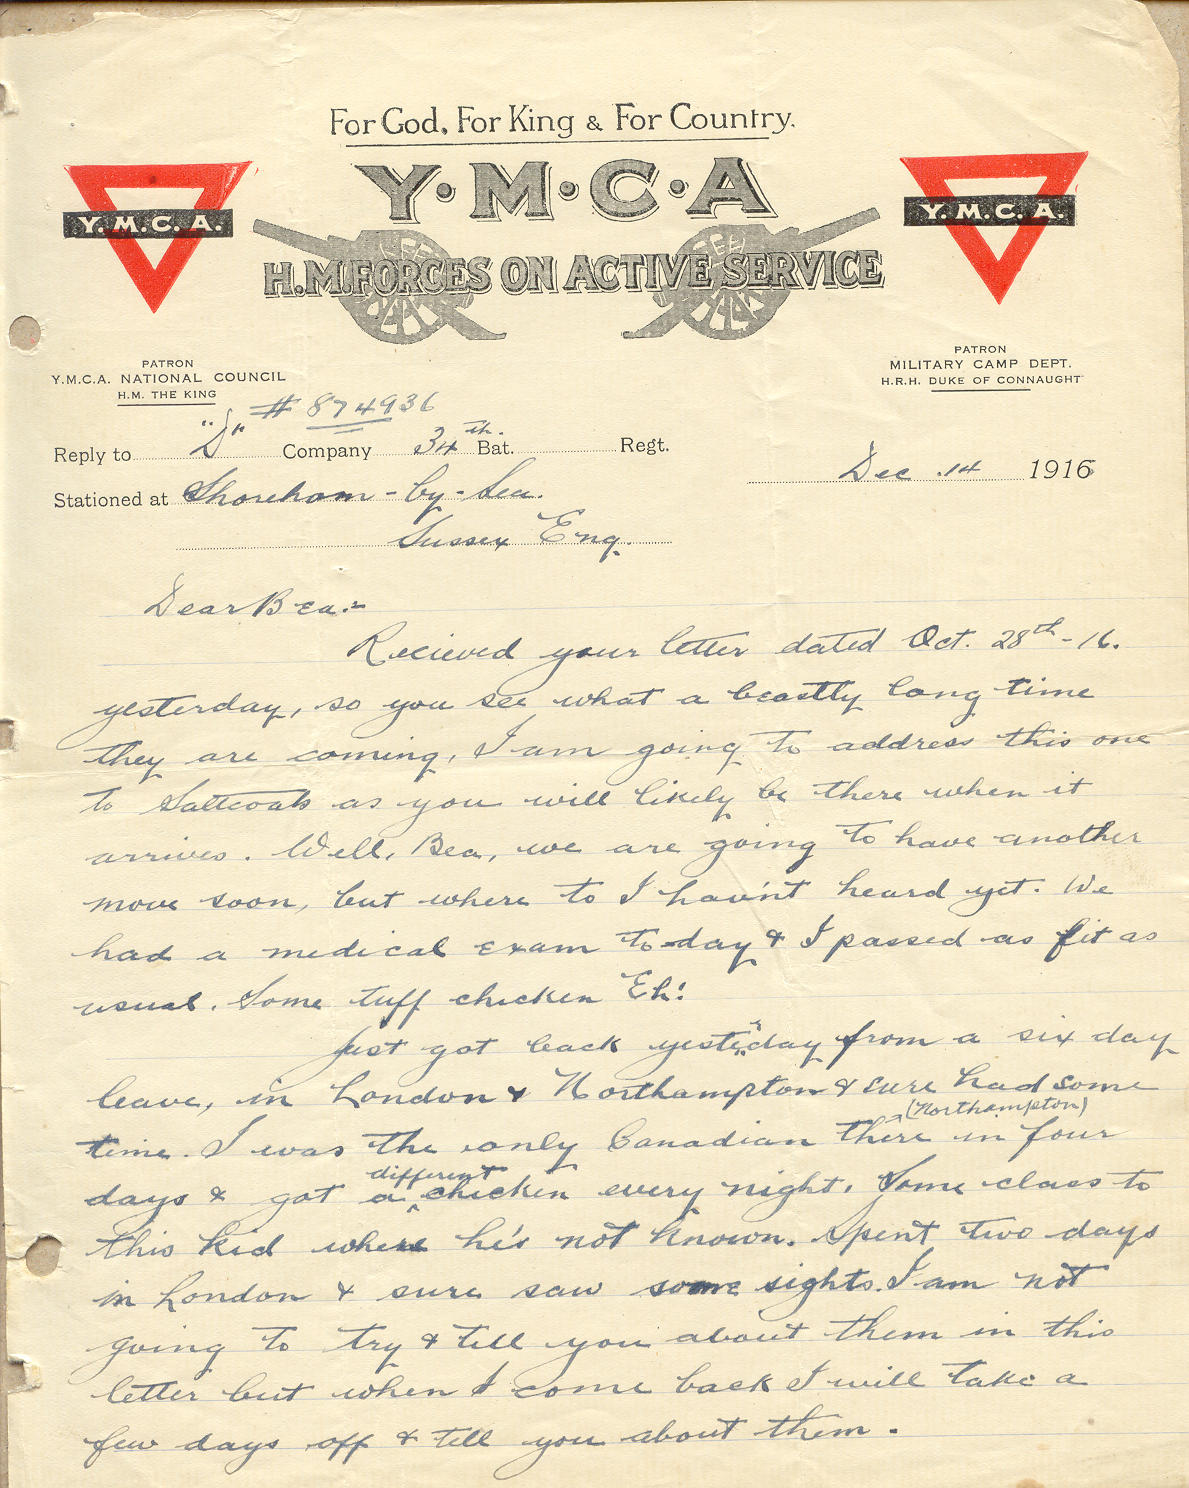 For God, For King & For Country.
Y·M·C·A
Y.M.C.A.
Y.M.C.A.
H.M. FORCES ON ACTIVE SERVICE
PATRON
Y.M.C.A. NATIONAL COUNCIL
H.M. THE KING
PATRON
MILITARY CAMP DEPT.
H.R.H. DUKE OF CONNAUGHT
# 874936
Reply to "D" Company 34th Bat. Regt.
Dec. 14 1916
Stationed at Shoreham-by-Sea.
Sussex Eng.
Dear Bea:-
Recieved your letter dated Oct. 28th-16.
yesterday, so you see what a beastly long time
they are coming, I am going to address this one
to Saltcoats as you will likely be there when it
arrives. Well, Bea, we are going to have another
move soon, but where to I hav'nt heard yet. We
had a medical exam to-day & I passed as fit as
usual. Some tuff chicken Eh!
Just got back yesterday from a six day
leave, in London & Northampton & sure had some
time. I was the only Canadian there (Northampton) in four
days & got a different chicken every night. Some class to
this kid where he's not known. Spent two days
in London & sure saw some sights. I am not
going to try & tell you about them in this
letter but when I come back I will take a
few days off & tell you about them.